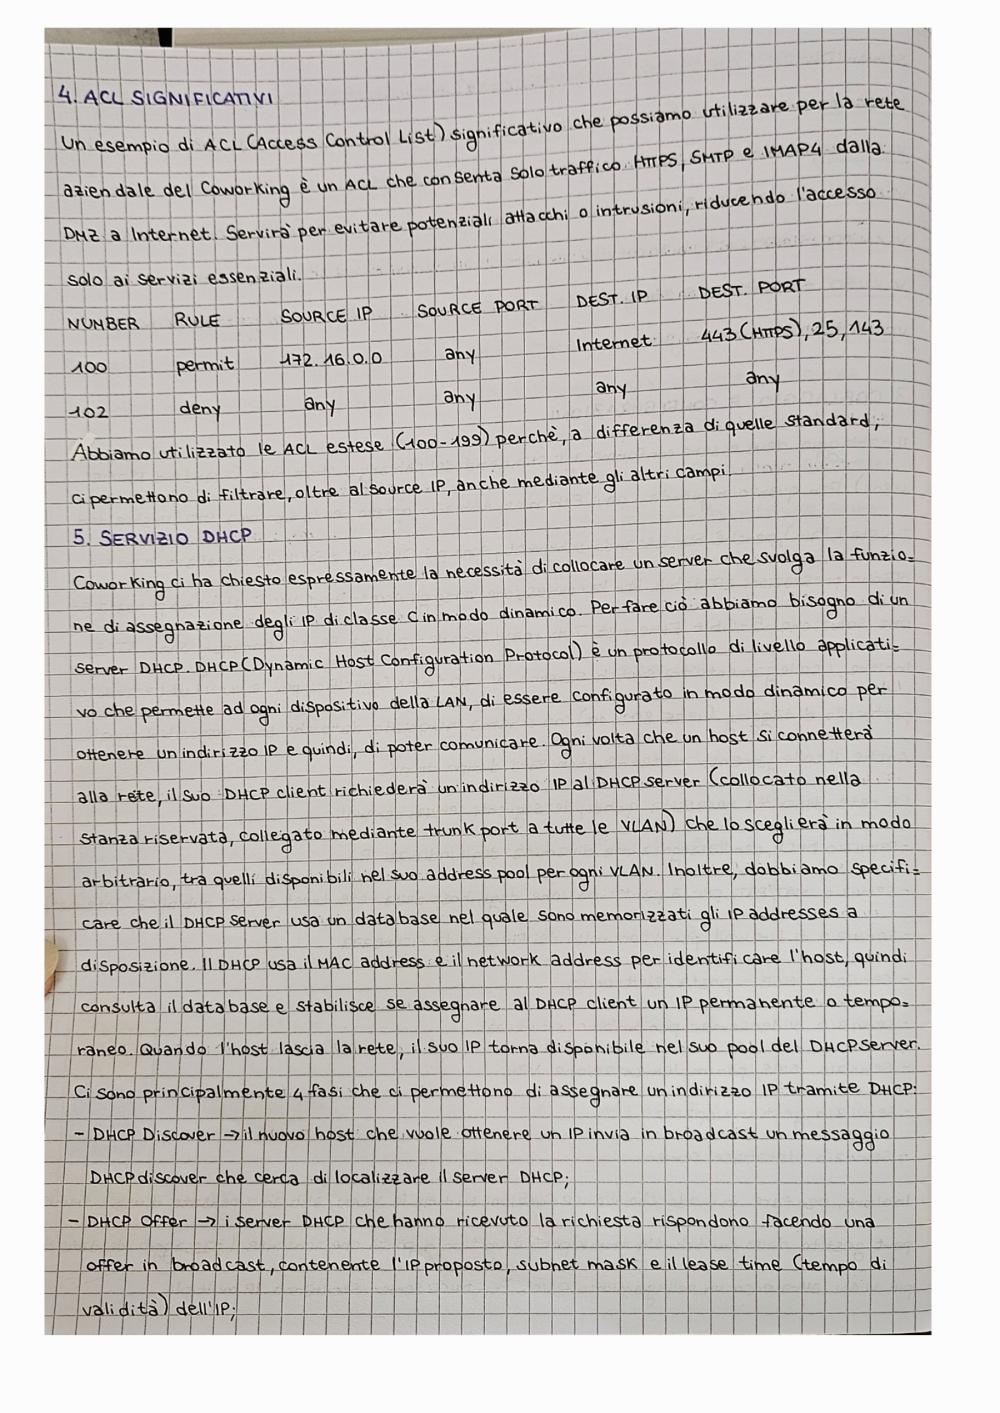 4. ACL SIGNIFICATIVI
Un esempio di ACL (Access Control List) significativo che possiamo utilizzare per la rete
aziendale del Coworking è un ACL che consenta solo traffico HTTPS, SMTP e IMAP4 dalla
DMZ a Internet. Servirà per evitare potenziali attacchi o intrusioni, riducendo l'accesso
solo ai servizi essenziali.
NUMBER RULE SOURCE IP SOURCE PORT DEST. IP DEST. PORT
100 permit 172.16.0.0 any Internet 443 (HTTPS), 25, 143
102 deny any any any any
Abbiamo utilizzato le ACL estese (100-199) perchè, a differenza di quelle standard,
ci permettono di filtrare, oltre al source IP, anche mediante gli altri campi.
5. SERVIZIO DHCP
Coworking ci ha chiesto espressamente la necessità di collocare un server che svolga la funzio=
ne di assegnazione degli IP di classe C in modo dinamico. Per fare ciò abbiamo bisogno di un
server DHCP. DHCP (Dynamic Host Configuration Protocol) è un protocollo di livello applicati=
vo che permette ad ogni dispositivo della LAN, di essere configurato in modo dinamico per
ottenere un indirizzo IP e quindi, di poter comunicare. Ogni volta che un host si connetterà
alla rete, il suo DHCP client richiederà un indirizzo IP al DHCP server (collocato nella
stanza riservata, collegato mediante trunk port a tutte le VLAN) che lo sceglierà in modo
arbitrario, tra quelli disponibili nel suo address pool per ogni VLAN. Inoltre, dobbiamo specifi=
care che il DHCP server usa un database nel quale sono memorizzati gli IP addresses a
disposizione. Il DHCP usa il MAC address e il network address per identificare l'host, quindi
consulta il database e stabilisce se assegnare al DHCP client un IP permanente o tempo=
raneo. Quando l'host lascia la rete, il suo IP torna disponibile nel suo pool del DHCP server.
Ci sono principalmente 4 fasi che ci permettono di assegnare un indirizzo IP tramite DHCP:
- DHCP Discover → il nuovo host che vuole ottenere un IP invia in broadcast un messaggio
DHCP discover che cerca di localizzare il server DHCP;
- DHCP Offer → i server DHCP che hanno ricevuto la richiesta rispondono facendo una
offer in broadcast, contenente l'IP proposto, subnet mask e il lease time (tempo di
validità) dell'IP;